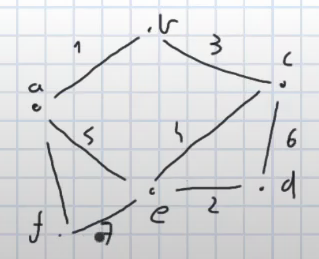 b
1
3
c
a
5
4
6
e
2
d
f
7